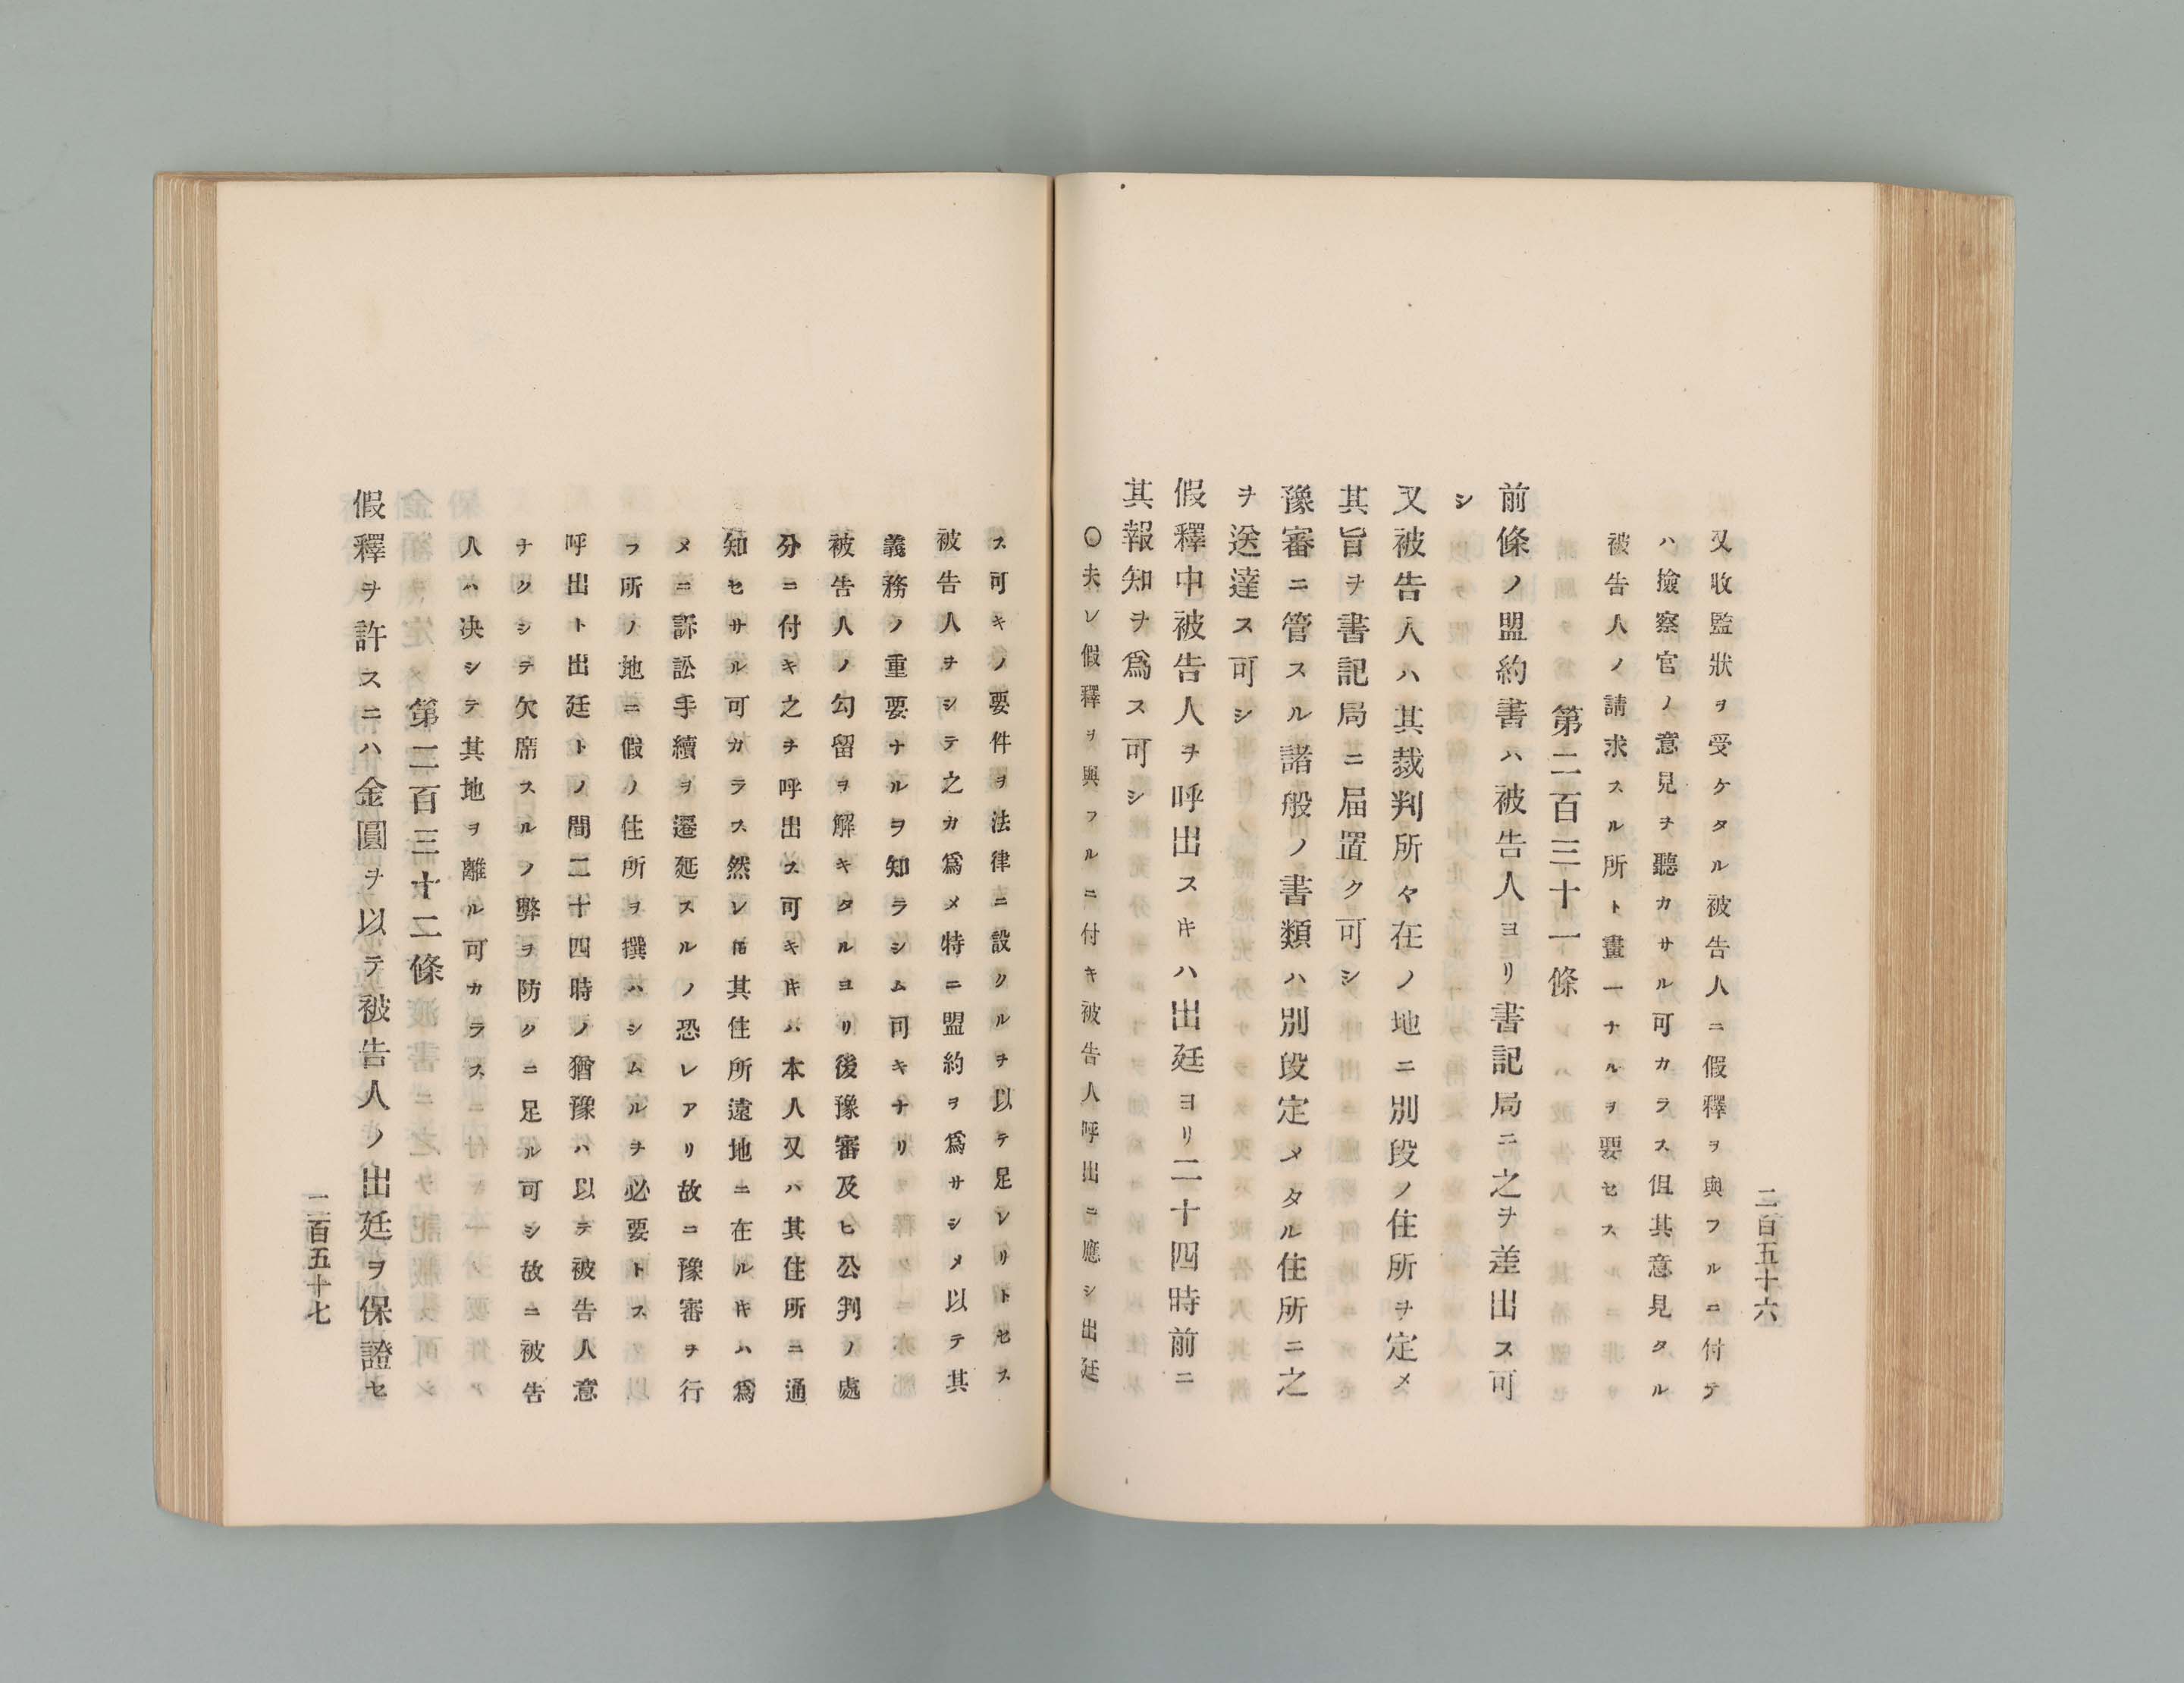 二百五十六
又收監狀ヲ受ケタル被告人ニ假釋ヲ與フルニ付テ
ハ撿察官ノ意見ヲ聽カサル可カラス但其意見タル
被告人ノ請求スル所ト畫一ナルヲ要セス
第二百三十一條
前條ノ盟約書ハ被告人ヨリ書記局ニ之ヲ差出ス可
シ
又被告人ハ其裁判所々在ノ地ニ別段ノ住所ヲ定メ
其旨ヲ書記局ニ届置ク可シ
豫審ニ管スル諸般ノ書類ハ別段定メタル住所ニ之
ヲ送達ス可シ
假釋中被告人ヲ呼出スキハ出廷ヨリ二十四時前ニ
其報知ヲ爲ス可シ
〇夫レ假釋ヲ與フルニ付キ被告人呼出ニ應シ出廷
ス可キノ要件ヲ法律ニ設クルヲ以テ足レリトセス
被告人ヲシテ之カ爲メ特ニ盟約ヲ爲サシメ以テ其
義務ノ重要ナルヲ知ラシム可キナリ
被告人ノ勾留ヲ解キタルヨリ後豫審及ヒ公判ノ處
分ニ付キ之ヲ呼出ス可キキハ本人又ハ其住所ニ通
知セサル可カラス然レ𪜈其住所遠地ニ在ルキハ爲
メニ訴訟手續ヲ遷延スルノ恐レアリ故ニ豫審ヲ行
フ所ノ地ニ假ノ住所ヲ撰ハシムルヲ必要トス
呼出ト出廷トノ間二十四時ノ猶豫ハ以テ被告人意
ナクシテ欠席スルノ弊ヲ防クニ足ル可シ故ニ被告
人ハ决シテ其地ヲ離ル可カラス
第二百三十二條
假釋ヲ許スニハ金圓ヲ以テ被告人ノ出廷ヲ保證セ
二百五十七